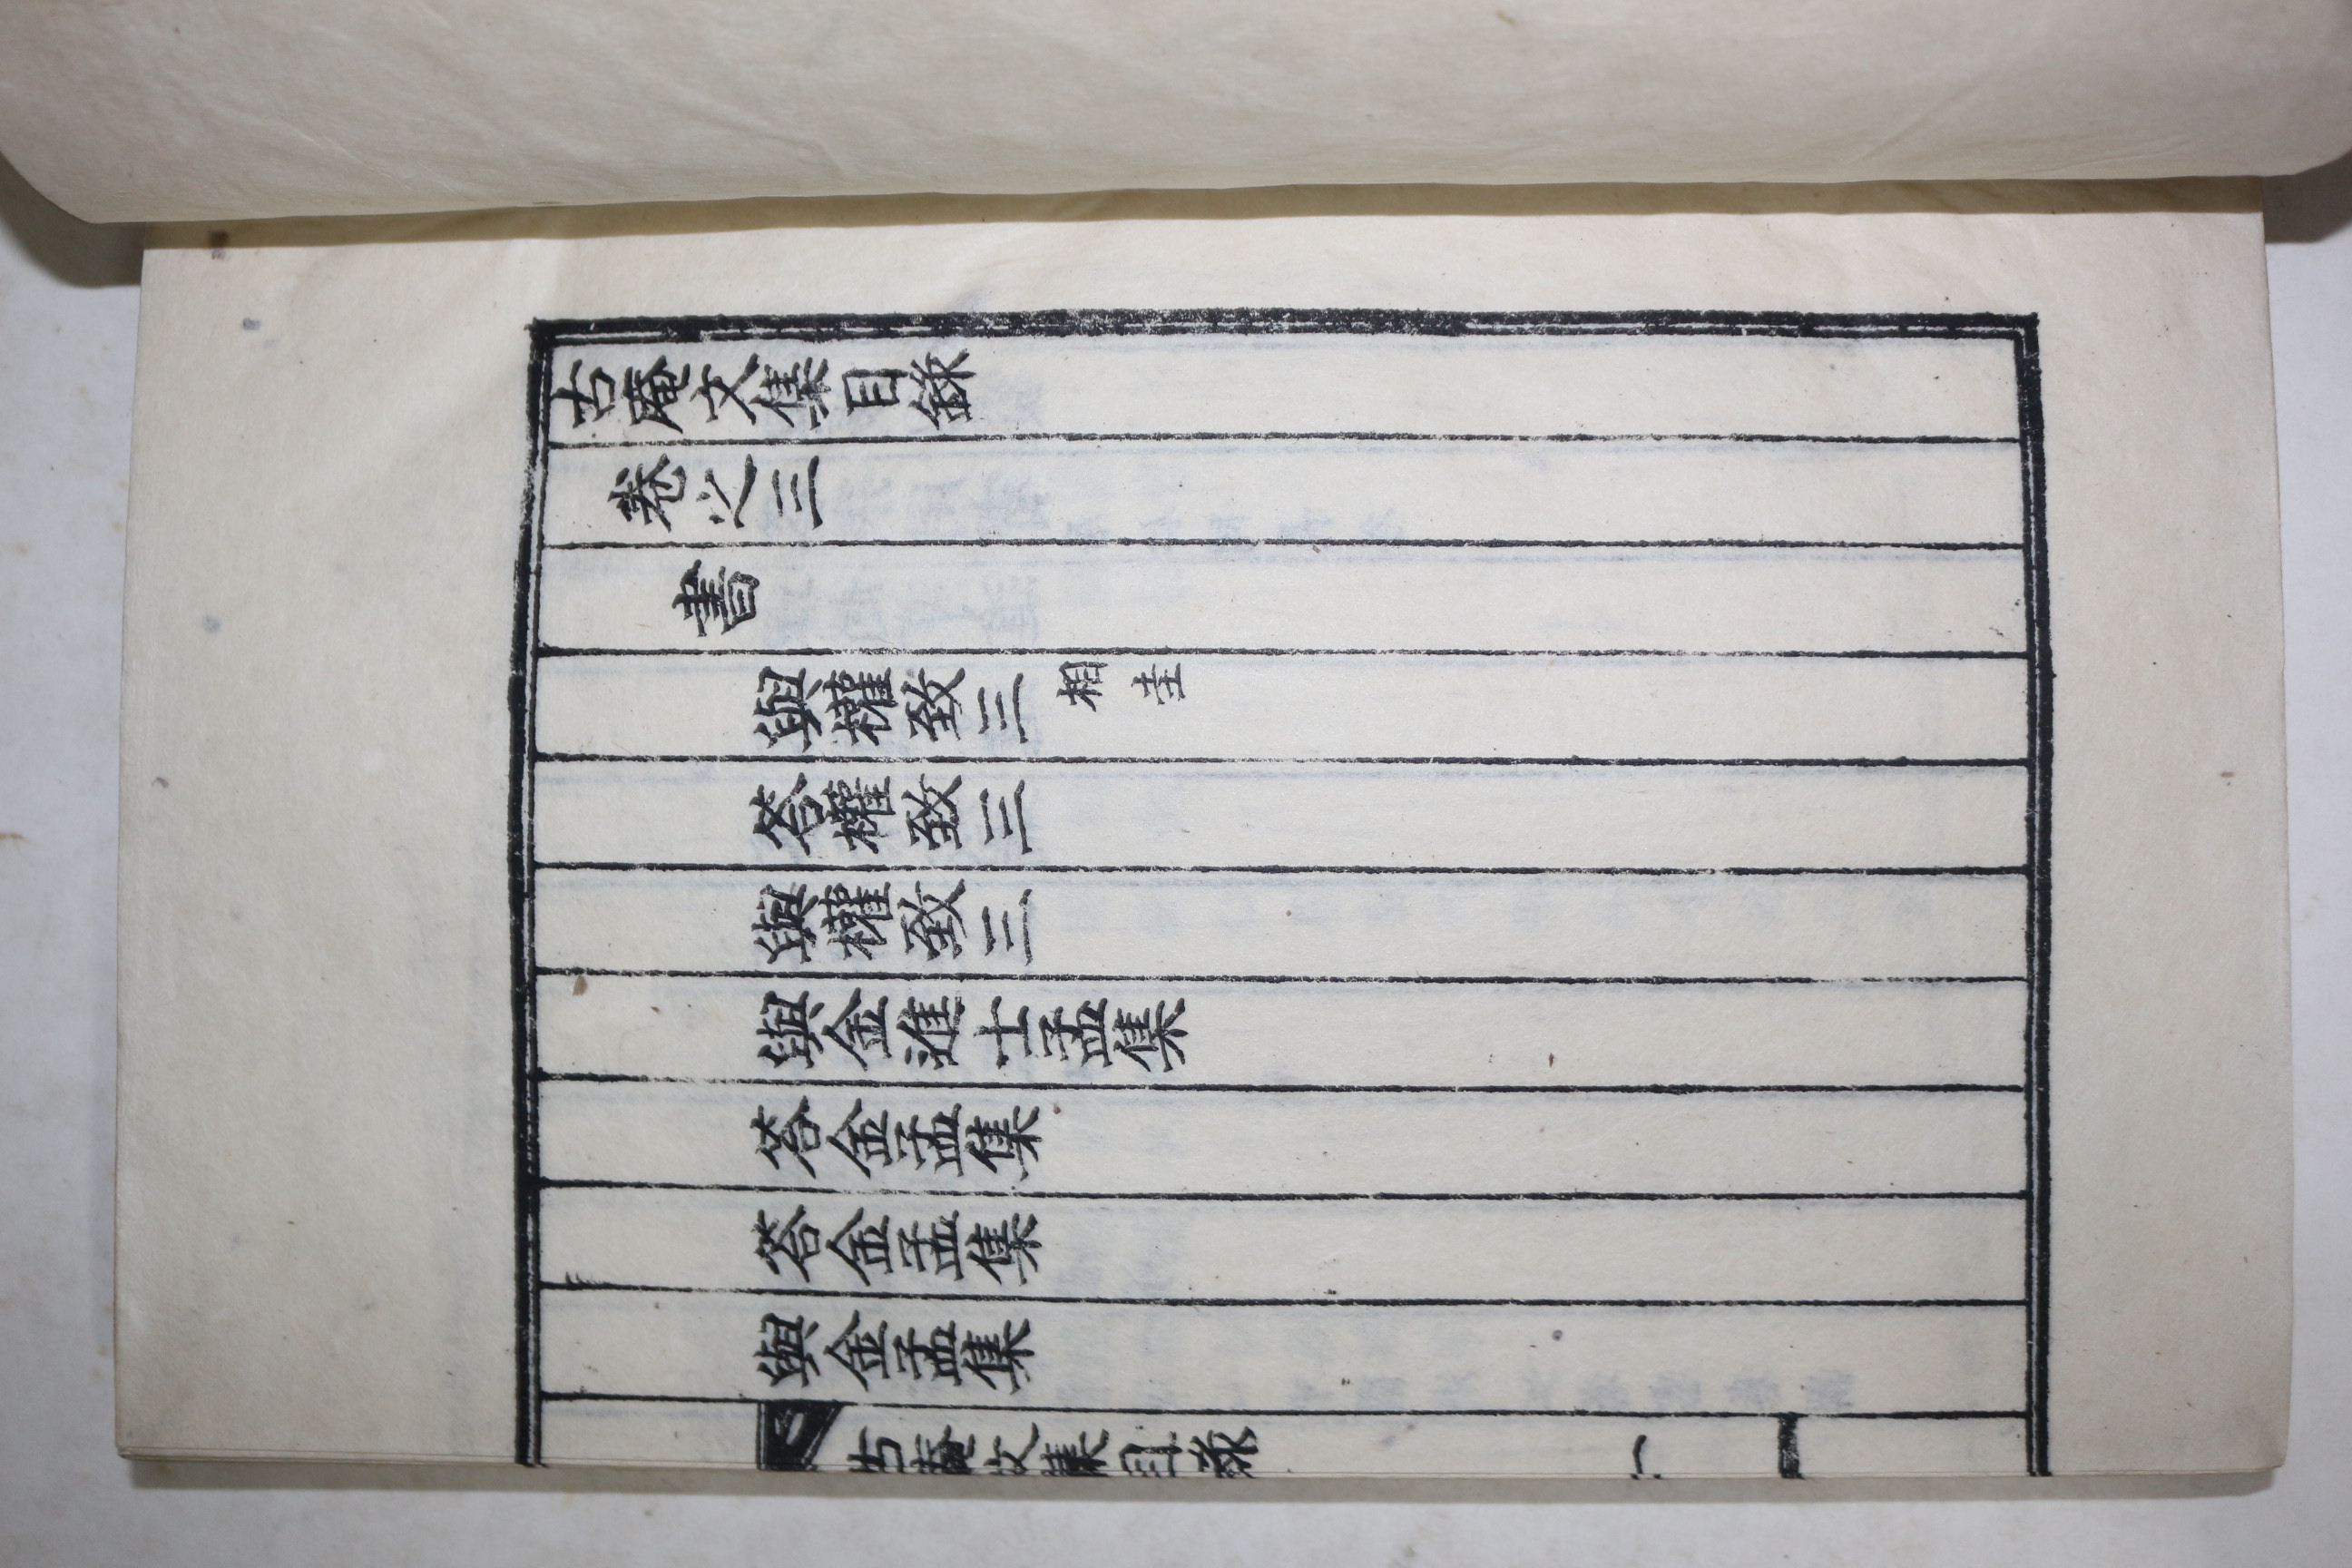 古庵文集目錄
卷之三
書
與權致三 相圭
答權致三
與權致三
與金進士孟集
答金孟集
答金孟集
與金孟集
古庵文集目錄 一